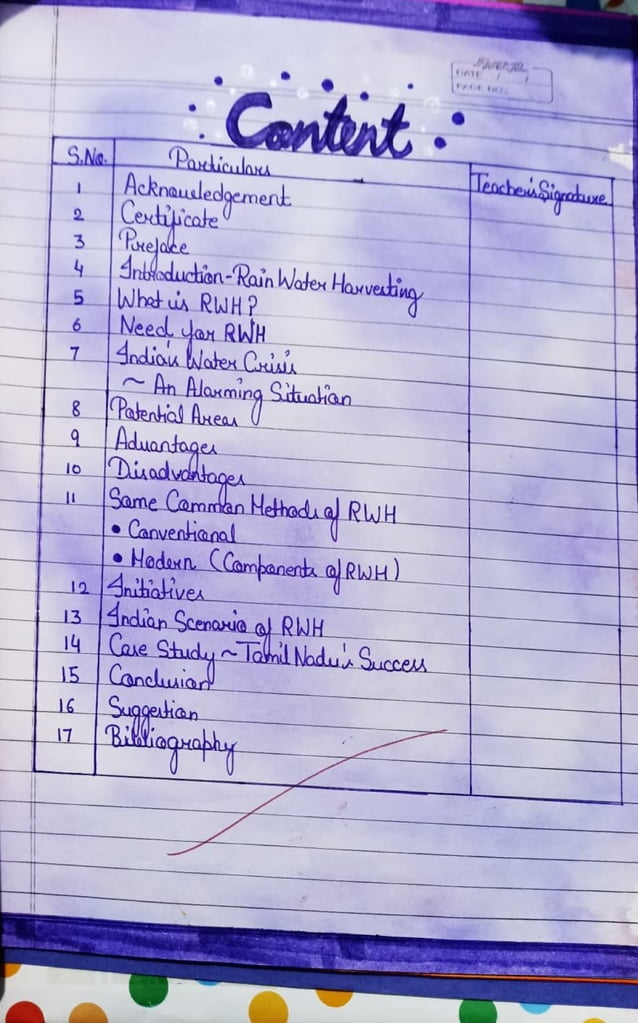 DATE / /
PAGE NO.
Content
S.No. Particulars Teacher's Signature
1 Acknowledgement
2 Certificate
3 Preface
4 Introduction-Rain Water Harvesting
5 What is RWH?
6 Need for RWH
7 India's Water Crisis
~ An Alarming Situation
8 Potential Areas
9 Advantages
10 Disadvantages
11 Some Common Methods of RWH
• Conventional
• Modern (Components of RWH)
12 Initiatives
13 Indian Scenario of RWH
14 Case Study ~ Tamil Nadu's Success
15 Conclusion
16 Suggestion
17 Bibliography